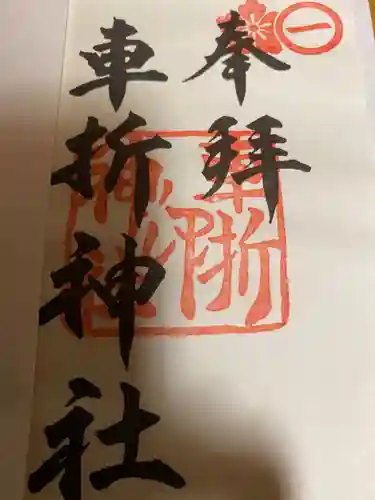 奉拝
車折神社
一
車折
神社